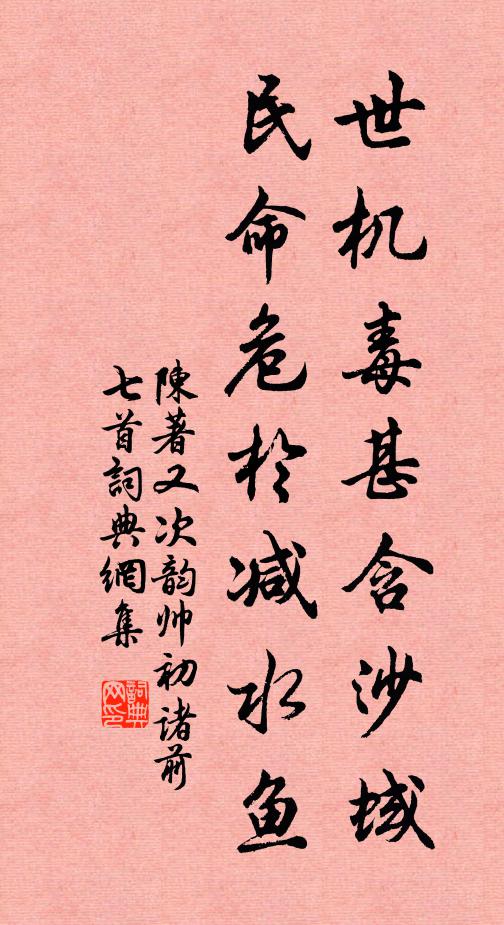 世机毒甚含沙域
民命危於减水鱼
陳著又次韵帅初诸前
七首詞典網集
詞典网印